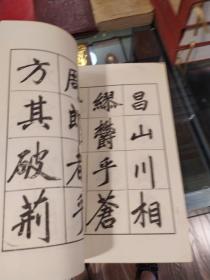 昌山川相
繆欝乎蒼
周郎者乎
方其破荊